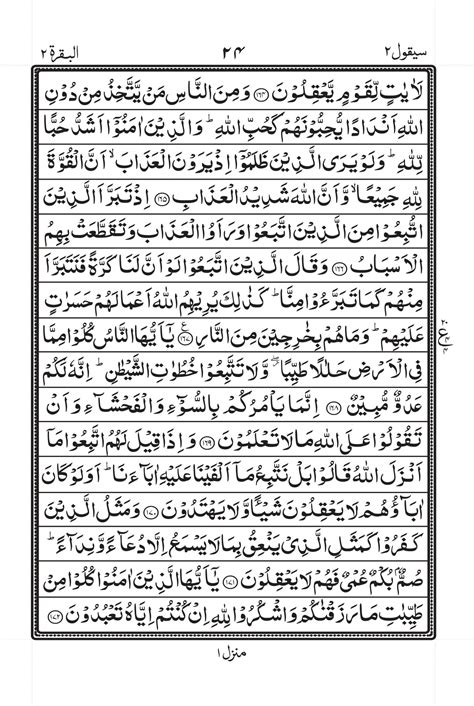 سيقول ٢ ٢٤ البقرة ٢
لَاٰيٰتٍ لِّقَوْمٍ يَّعْقِلُوْنَ ﴿١٦٤﴾ وَمِنَ النَّاسِ مَنْ يَّتَّخِذُ مِنْ دُوْنِ
اللّٰهِ اَنْدَادًا يُّحِبُّوْنَهُمْ كَحُبِّ اللّٰهِ ؕ وَالَّذِيْنَ اٰمَنُوْۤا اَشَدُّ حُبًّا
لِّلّٰهِ ؕ وَلَوْ يَرَى الَّذِيْنَ ظَلَمُوْۤا اِذْ يَرَوْنَ الْعَذَابَ ۙ اَنَّ الْقُوَّةَ
لِلّٰهِ جَمِيْعًا ۙ وَّاَنَّ اللّٰهَ شَدِيْدُ الْعَذَابِ ﴿١٦٥﴾ اِذْ تَبَرَّاَ الَّذِيْنَ
اتُّبِعُوْا مِنَ الَّذِيْنَ اتَّبَعُوْا وَرَاَوُا الْعَذَابَ وَتَقَطَّعَتْ بِهِمُ
الْاَسْبَابُ ﴿١٦٦﴾ وَقَالَ الَّذِيْنَ اتَّبَعُوْا لَوْ اَنَّ لَنَا كَرَّةً فَنَتَبَرَّاَ
مِنْهُمْ كَمَا تَبَرَّءُوْا مِنَّا ؕ كَذٰلِكَ يُرِيْهِمُ اللّٰهُ اَعْمَالَهُمْ حَسَرٰتٍ
عَلَيْهِمْ ؕ وَمَا هُمْ بِخٰرِجِيْنَ مِنَ النَّارِ ﴿١٦٧﴾ يٰۤاَيُّهَا النَّاسُ كُلُوْا مِمَّا
فِى الْاَرْضِ حَلٰلًا طَيِّبًا ۖ وَّلَا تَتَّبِعُوْا خُطُوٰتِ الشَّيْطٰنِ ؕ اِنَّهٗ لَكُمْ
عَدُوٌّ مُّبِيْنٌ ﴿١٦٨﴾ اِنَّمَا يَاْمُرُكُمْ بِالسُّوْٓءِ وَالْفَحْشَآءِ وَاَنْ
تَقُوْلُوْا عَلَى اللّٰهِ مَا لَا تَعْلَمُوْنَ ﴿١٦٩﴾ وَاِذَا قِيْلَ لَهُمُ اتَّبِعُوْا مَاۤ
اَنْزَلَ اللّٰهُ قَالُوْا بَلْ نَتَّبِعُ مَاۤ اَلْفَيْنَا عَلَيْهِ اٰبَآءَنَا ؕ اَوَلَوْ كَانَ
اٰبَآؤُهُمْ لَا يَعْقِلُوْنَ شَيْـًٔا وَّلَا يَهْتَدُوْنَ ﴿١٧٠﴾ وَمَثَلُ الَّذِيْنَ
كَفَرُوْا كَمَثَلِ الَّذِيْ يَنْعِقُ بِمَا لَا يَسْمَعُ اِلَّا دُعَآءً وَّنِدَآءً ؕ
صُمٌّۢ بُكْمٌ عُمْيٌ فَهُمْ لَا يَعْقِلُوْنَ ﴿١٧١﴾ يٰۤاَيُّهَا الَّذِيْنَ اٰمَنُوْا كُلُوْا مِنْ
طَيِّبٰتِ مَا رَزَقْنٰكُمْ وَاشْكُرُوْا لِلّٰهِ اِنْ كُنْتُمْ اِيَّاهُ تَعْبُدُوْنَ ﴿١٧٢﴾
منزل ١